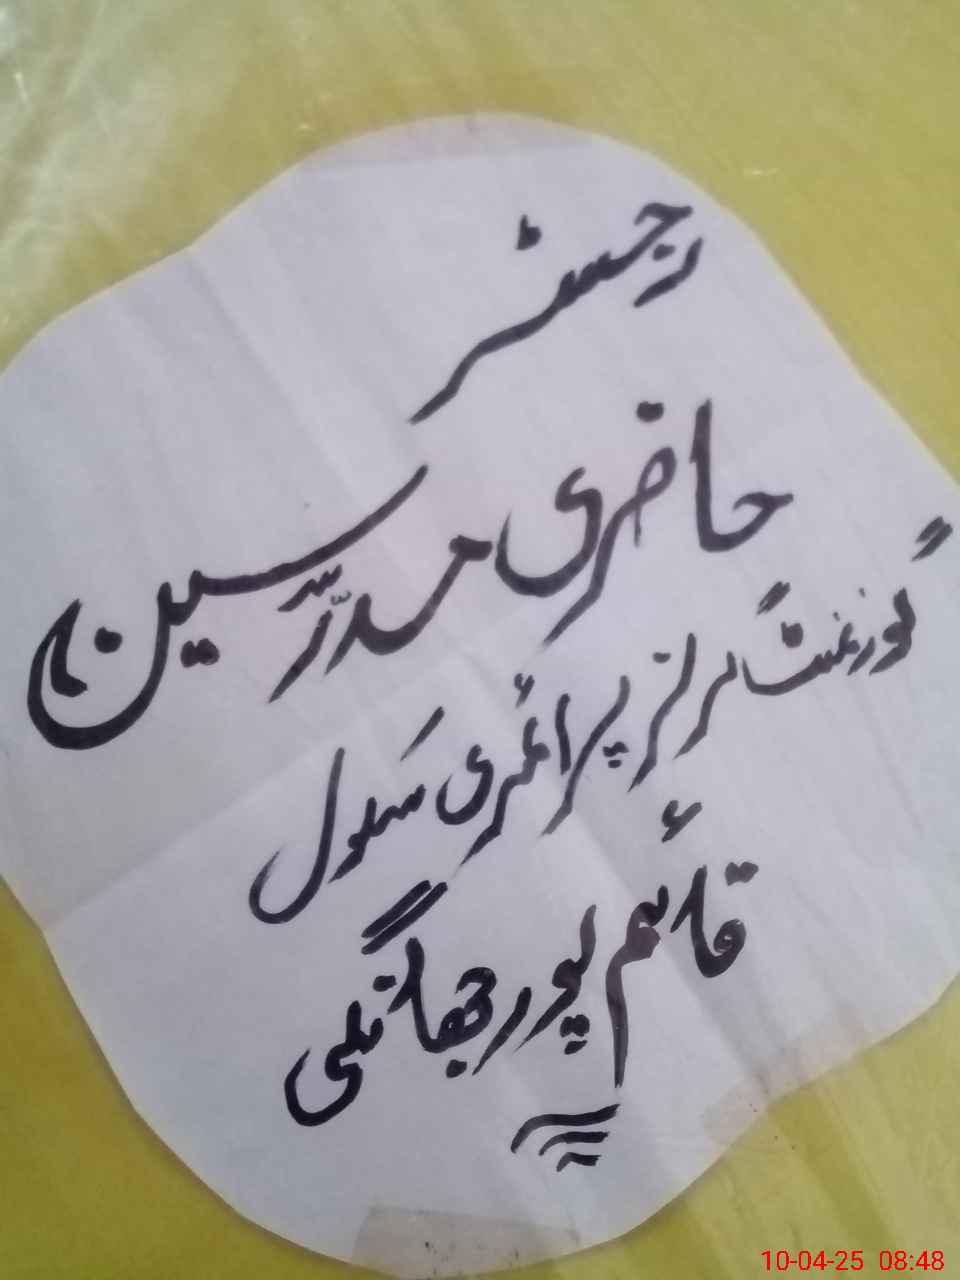 رجسٹر
حاضری مدرّسین
گورنمنٹ گرلز پرائمری سکول
قائم پور جھانگلی
10-04-25 08:48